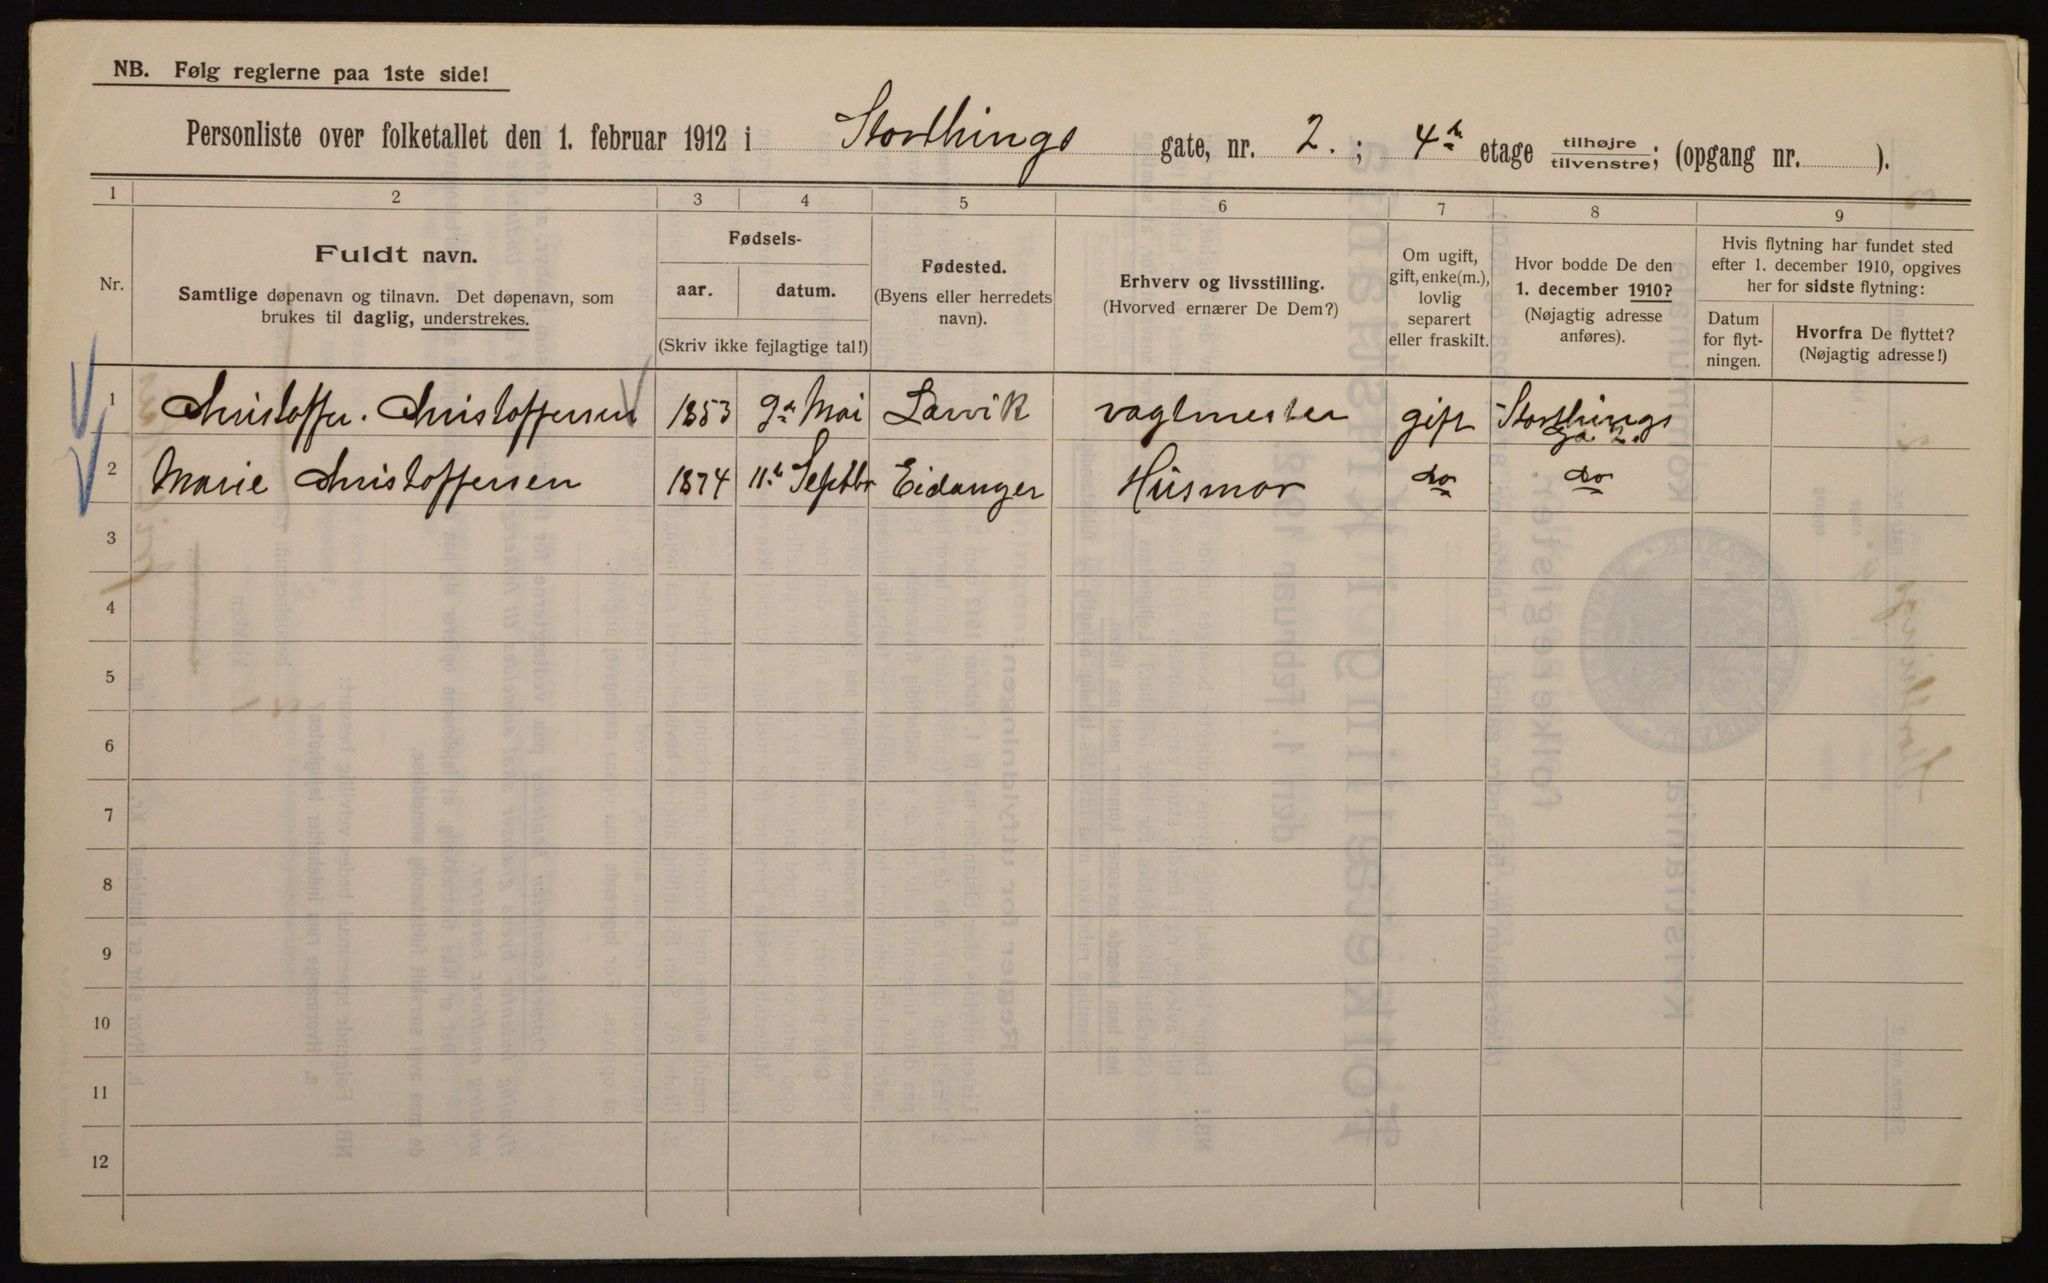 NB. Følg reglerne paa 1ste side!
Personliste over folketallet den 1. februar 1912 i Storthings gate, nr. 2. ; 4de etage tilhøjre/tilvenstre; (opgang nr. ).
1 2 3 4 5 6 7 8 9
Nr.
Fuldt navn.
Samtlige døpenavn og tilnavn. Det døpenavn, som
brukes til daglig, understrekes.
Fødsels-
aar. datum.
(Skriv ikke fejlagtige tal!)
Fødested.
(Byens eller herredets
navn).
Erhverv og livsstilling.
(Hvorved ernærer De Dem?)
Om ugift,
gift, enke(m.),
lovlig
separert
eller fraskilt.
Hvor bodde De den
1. december 1910?
(Nøjagtig adresse
anføres).
Hvis flytning har fundet sted
efter 1. december 1910, opgives
her for sidste flytning:
Datum
for flyt-
ningen.
Hvorfra De flyttet?
(Nøjagtig adresse!)
1 Christoffer. Christoffersen 1853 9de Mai Larvik vagtmester gift Storthings
ga 2.
2 Marie Christoffersen 1874 11te Septbr Eidanger Husmor do do
3
4
5
6
7
8
9
10
11
12